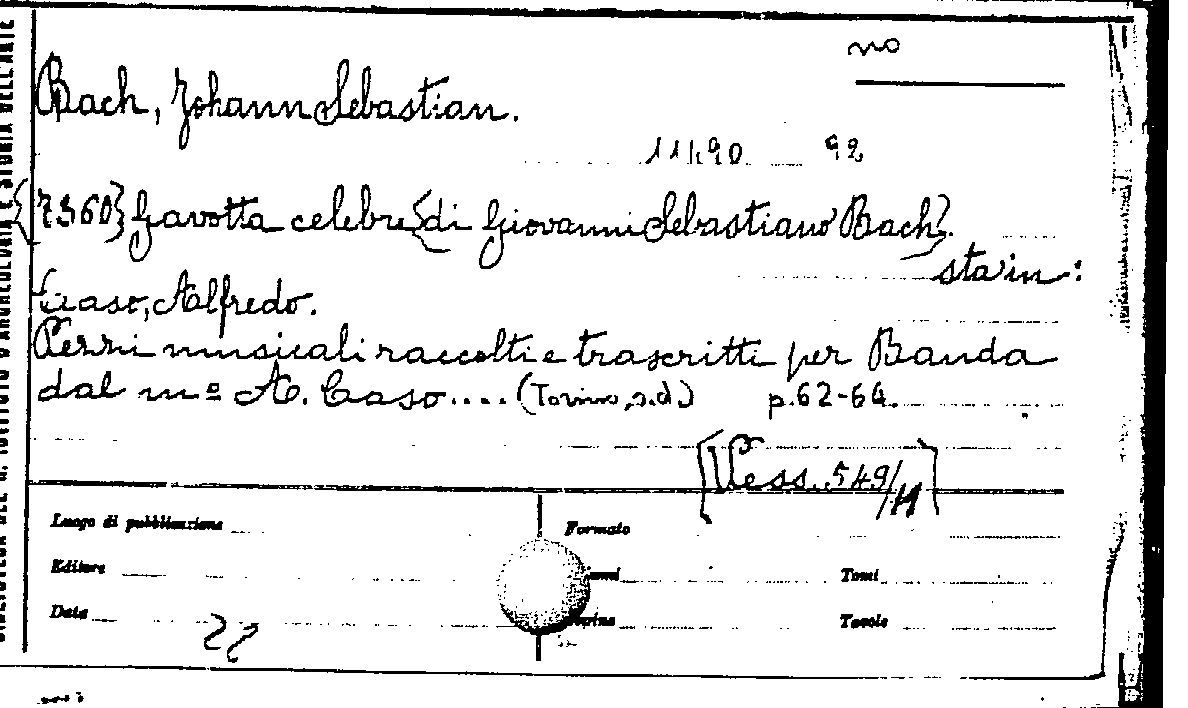 no
Bach, Johann Sebastian.
11490 92
{7360} Gavotta celebre {di Giovanni Sebastiano Bach}.
sta in:
Caso, Alfredo.
Pezzi musicali raccolti e trascritti per Banda
dal mº A. Caso.... (Torino, s.d.) p.62-64.
[Vess. 549/H]
Luogo di pubblicazione
Formato
Editore
Tomi
Data
Tavole
22
BIBLIOTECA DEL R. ISTITUTO D'ARCHEOLOGIA E STORIA DELL'ARTE